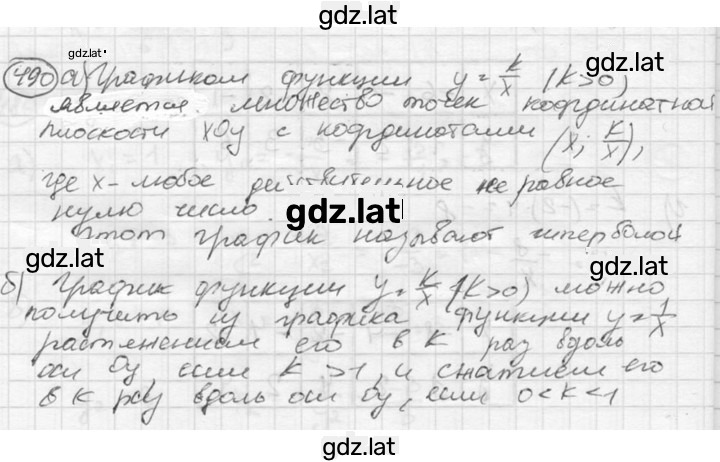 gdz.lat
gdz.lat
490 а) Графиком функции y = k/x (k>0)
является множество точек координатной
плоскости xOy с координатами (x; k/x),
gdz.lat
где x - любое действительное не равное
нулю число.
gdz.lat
Этот график называют гиперболой
gdz.lat
б) График функции y = k/x (k>0) можно
получить из графика функции y = 1/x
растяжением его в k раз вдоль
оси Oy, если k>1, и сжатием его
в k раз вдоль оси Oy, если 0<k<1
gdz.lat